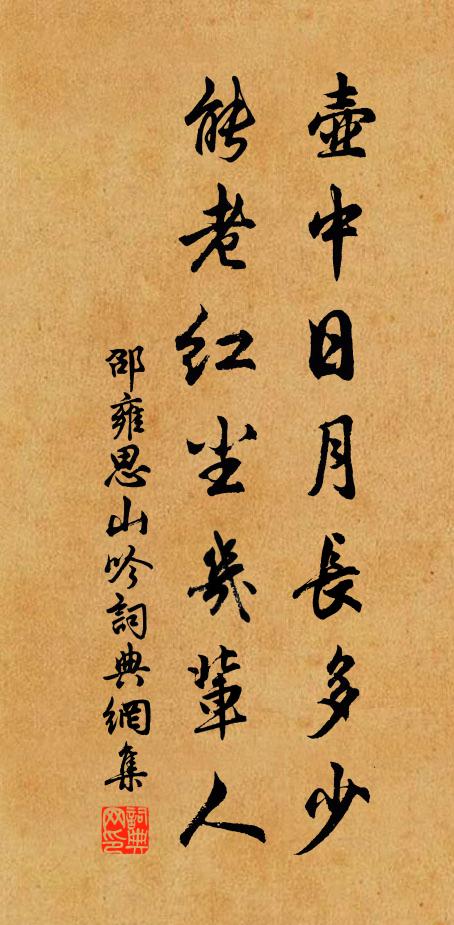 壺中日月長多少
能老紅尘幾輩人
邵雍思山吟詞典網集
詞典網印